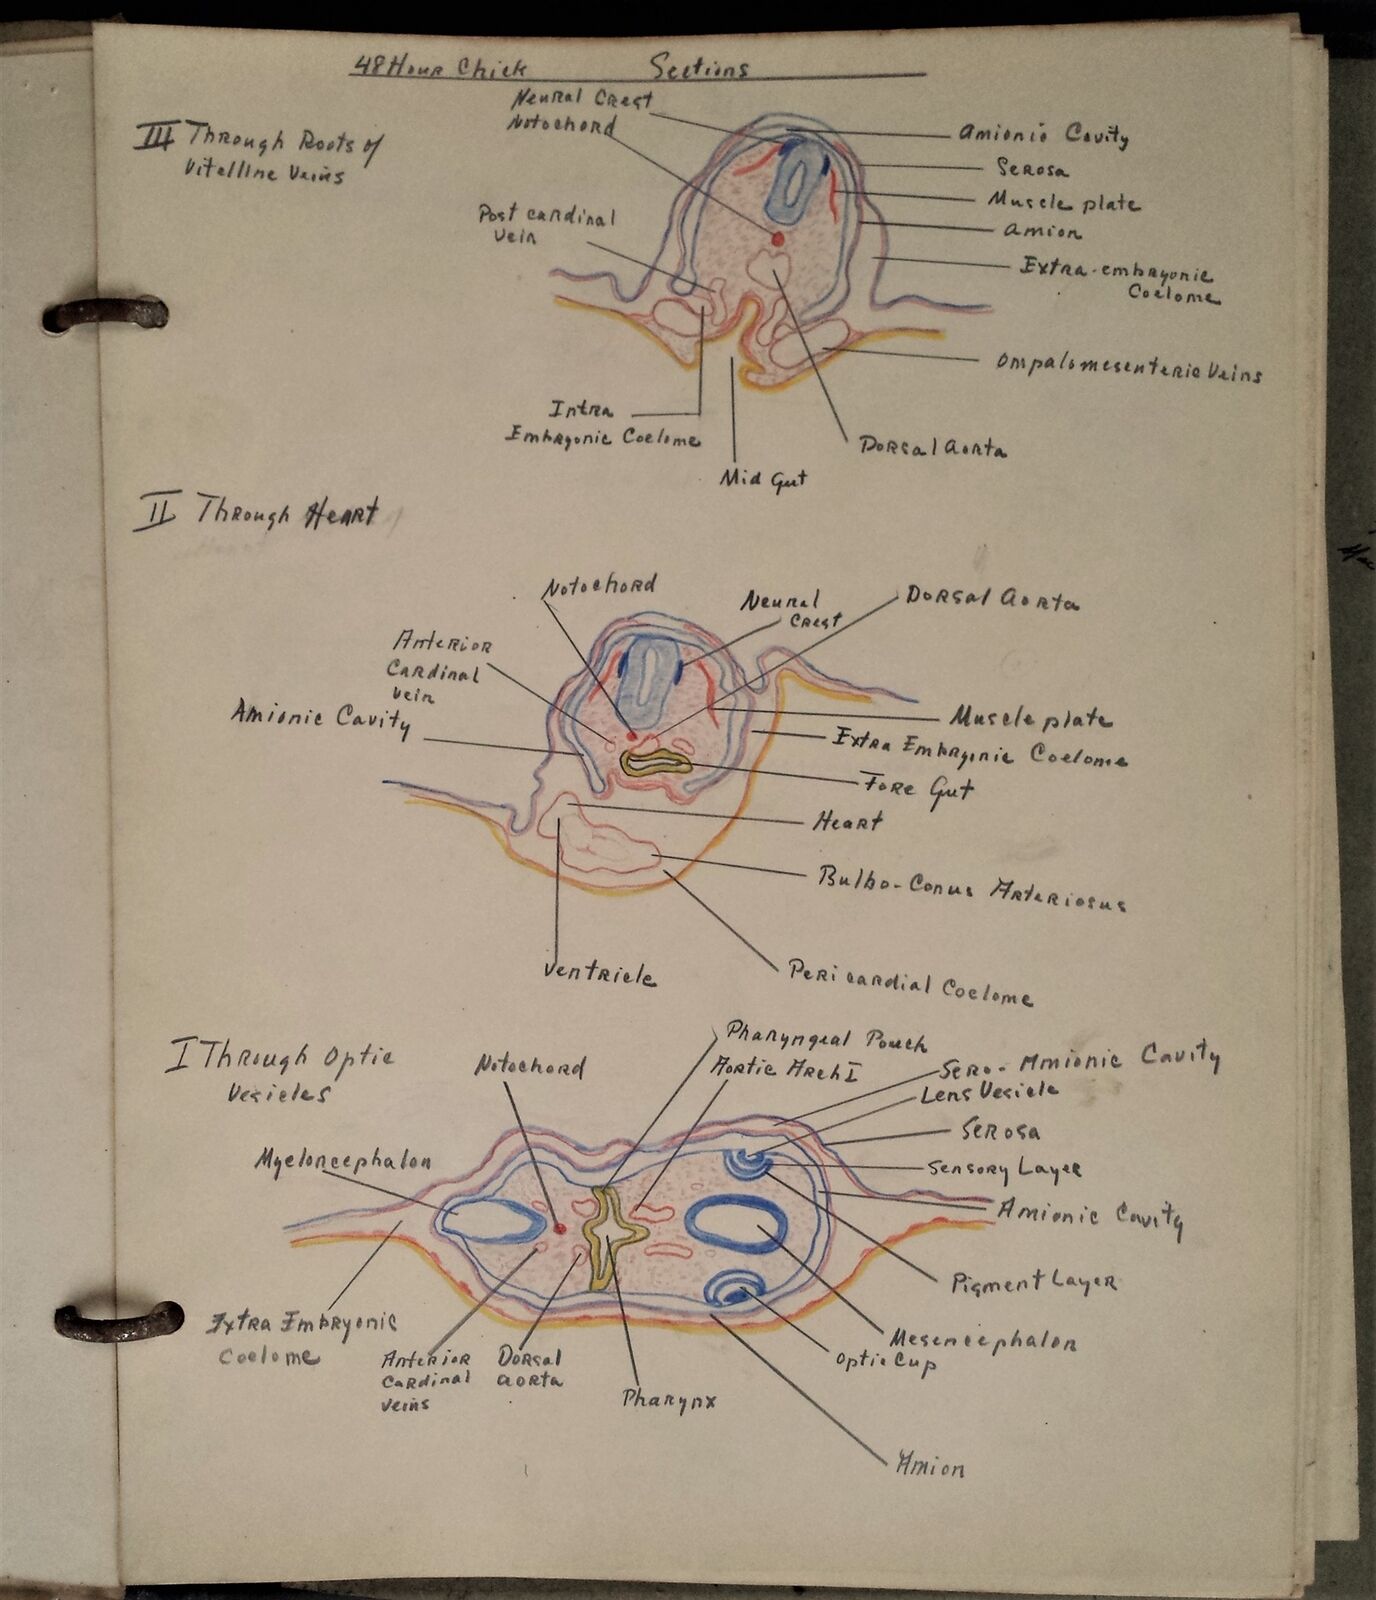 48 Hour Chick Sections
III Through Roots of
Vitelline Veins
Neural Crest
Notochord
Amionic Cavity
Serosa
Muscle plate
Amion
Extra-embryonic
Coelome
Post cardinal
Vein
Ompalomesenteric Veins
Intra
Embryonic Coelome
Dorsal Aorta
Mid Gut
II Through Heart
Notochord
Neural
Crest
Dorsal Aorta
Anterior
Cardinal
Vein
Amionic Cavity
Muscle plate
Extra Embryonic Coelome
Fore Gut
Heart
Bulbo-Conus Arteriosus
Ventricle
Pericardial Coelome
I Through Optic
Vesicles
Notochord
Pharyngeal Pouch
Aortic Arch I
Sero-Amionic Cavity
Lens Vesicle
Serosa
Sensory Layer
Amionic Cavity
Myeloncephalon
Pigment Layer
Mesencephalon
Optic Cup
Extra Embryonic
Coelome
Anterior
Cardinal
Veins
Dorsal
Aorta
Pharynx
Amion